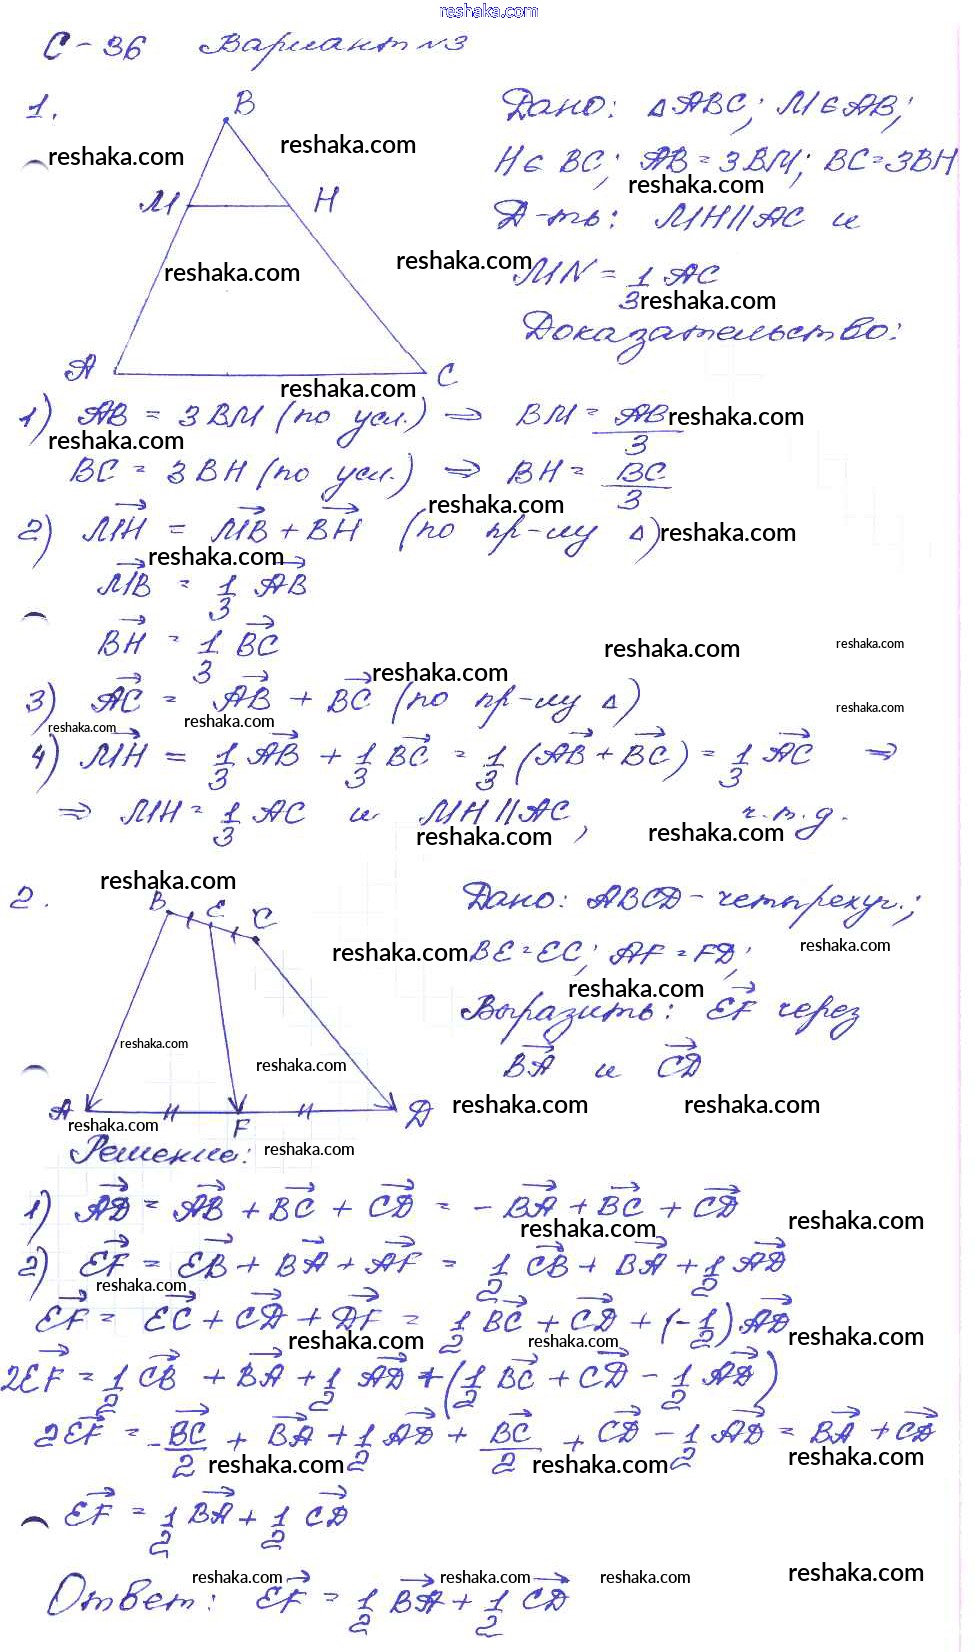 reshaka.com
С-36 Вариант №3
1.
B
M H
A C
Дано: △ABC; M∈AB;
H∈BC; AB=3BM; BC=3BH
Д-ть: MH||AC и
MN = 1/3 AC
Доказательство:
1) AB = 3BM (по усл.) ⇒ BM = AB/3
BC = 3BH (по усл.) ⇒ BH = BC/3
2) MH→ = MB→ + BH→ (по пр-лу △)
MB→ = 1/3 AB→
BH→ = 1/3 BC→
3) AC→ = AB→ + BC→ (по пр-лу △)
4) MH→ = 1/3 AB→ + 1/3 BC→ = 1/3 (AB→ + BC→) = 1/3 AC→ ⇒
⇒ MH = 1/3 AC и MH||AC, ч.т.д.
2.
B E C
A F D
Дано: ABCD - четырехуг.;
BE=EC; AF=FD;
Выразить: EF→ через
BA→ и CD→
Решение:
1) AD→ = AB→ + BC→ + CD→ = -BA→ + BC→ + CD→
2) EF→ = EB→ + BA→ + AF→ = 1/2 CB→ + BA→ + 1/2 AD→
EF→ = EC→ + CD→ + DF→ = 1/2 BC→ + CD→ + (-1/2) AD→
2EF→ = 1/2 CB→ + BA→ + 1/2 AD→ + (1/2 BC→ + CD→ - 1/2 AD→)
2EF→ = -BC→/2 + BA→ + 1/2 AD→ + BC→/2 + CD→ - 1/2 AD→ = BA→ + CD→
EF→ = 1/2 BA→ + 1/2 CD→
Ответ: EF→ = 1/2 BA→ + 1/2 CD→